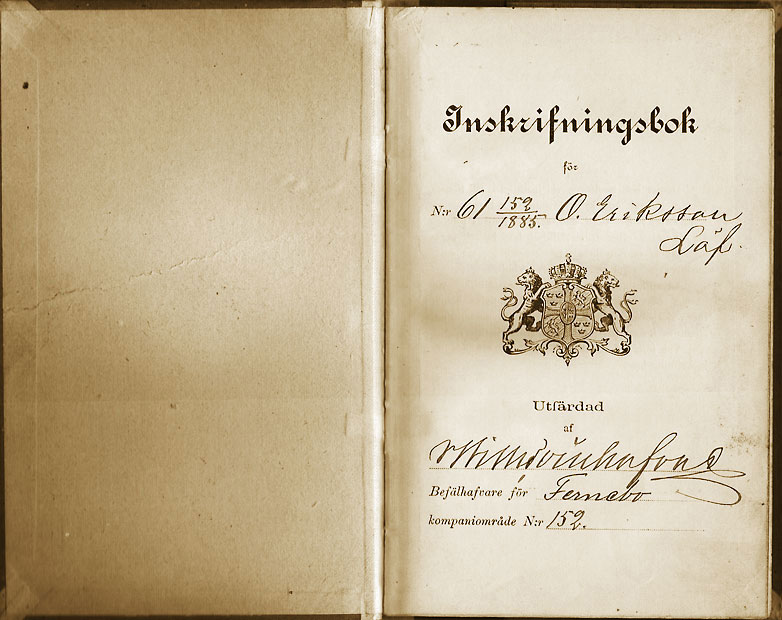 Inskrifningsbok
för
N:r 61 152/1885. O. Eriksson
Löf.
Utfärdad
af
Befälhafvare för Fernebo
kompaniområde N:r 152.